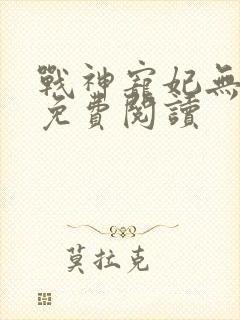 戰神寵妃無
免費閱讀
莫拉克